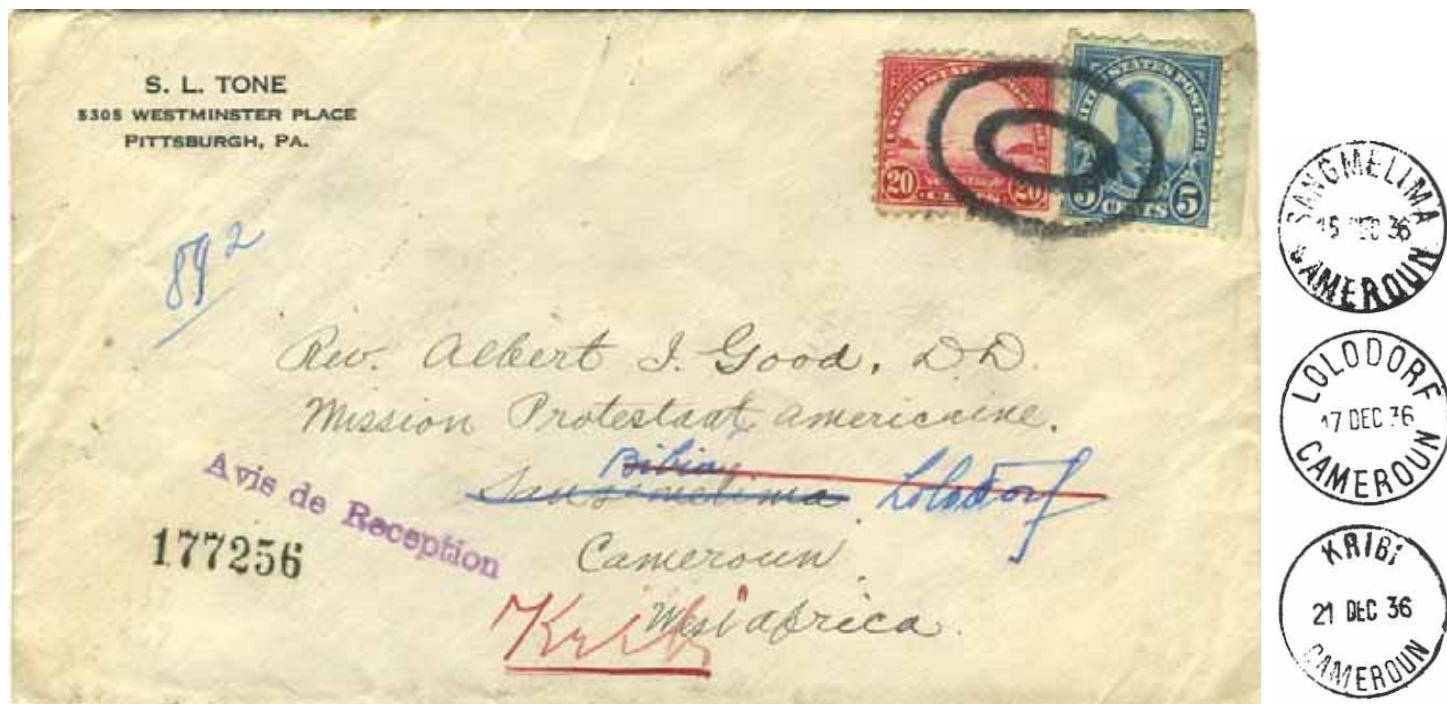 S. L. TONE
5305 WESTMINSTER PLACE
PITTSBURGH, PA.
UNITED STATES POSTAGE
20 20
CENTS
5 CENTS 5
89 2
Rev. Albert I. Good, D.D.
Mission Protestant Americaine.
Sangmelima Lolodorf
Cameroun
West Africa.
Kribi
Avis de Reception
177256
SANGMELIMA
15 DEC 36
CAMEROUN
LOLODORF
17 DEC 36
CAMEROUN
KRIBI
21 DEC 36
CAMEROUN